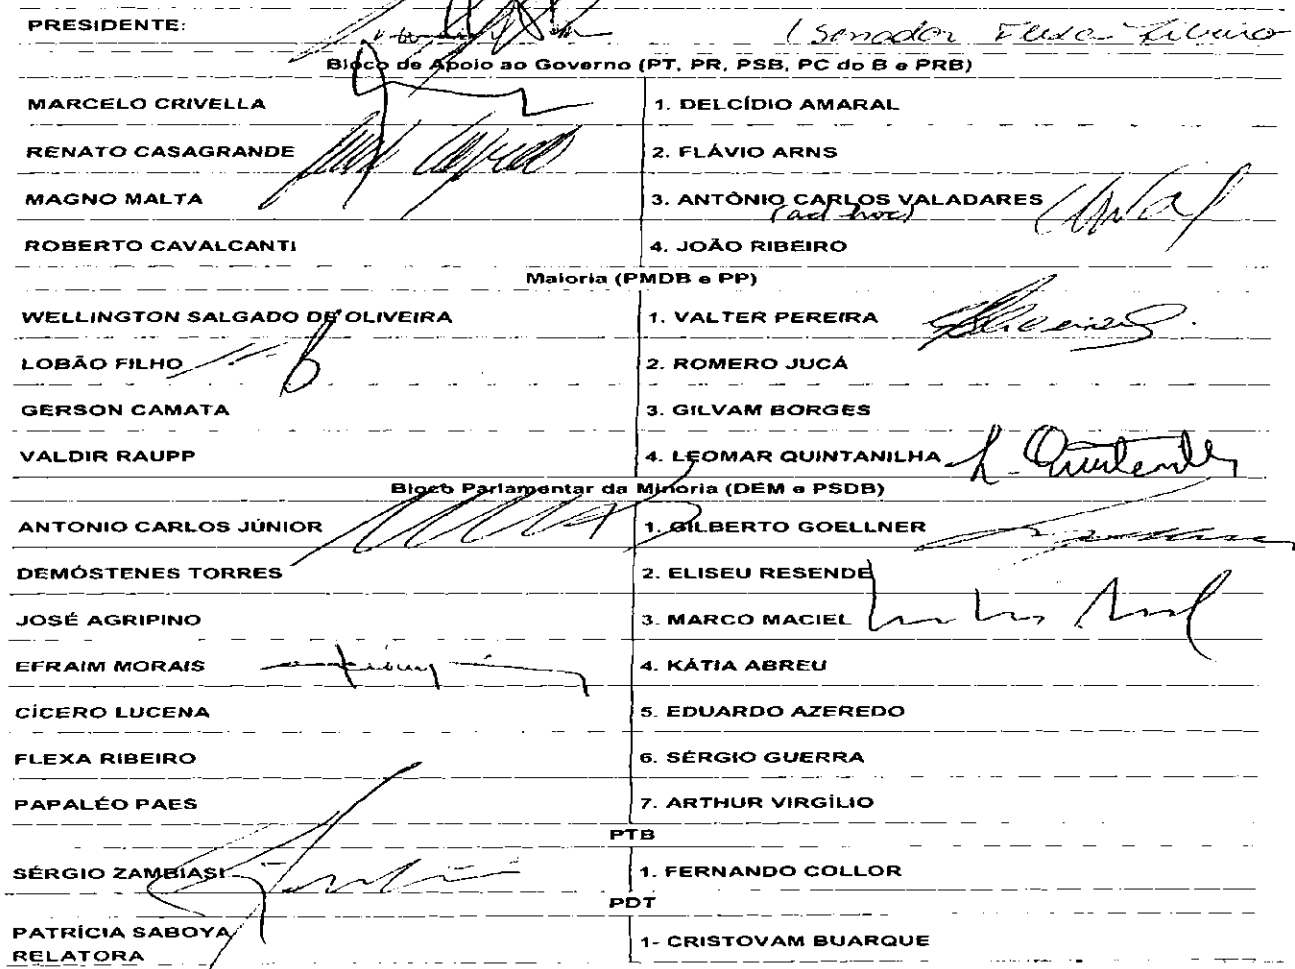 PRESIDENTE: (Senador Flexa Ribeiro
Bloco de Apoio ao Governo (PT, PR, PSB, PC do B e PRB)
MARCELO CRIVELLA 1. DELCÍDIO AMARAL
RENATO CASAGRANDE 2. FLÁVIO ARNS
MAGNO MALTA 3. ANTÔNIO CARLOS VALADARES
(ad hoc)
ROBERTO CAVALCANTI 4. JOÃO RIBEIRO
Maioria (PMDB e PP)
WELLINGTON SALGADO DE OLIVEIRA 1. VALTER PEREIRA
LOBÃO FILHO 2. ROMERO JUCÁ
GERSON CAMATA 3. GILVAM BORGES
VALDIR RAUPP 4. LEOMAR QUINTANILHA
Bloco Parlamentar da Minoria (DEM e PSDB)
ANTONIO CARLOS JÚNIOR 1. GILBERTO GOELLNER
DEMÓSTENES TORRES 2. ELISEU RESENDE
JOSÉ AGRIPINO 3. MARCO MACIEL
EFRAIM MORAIS 4. KÁTIA ABREU
CÍCERO LUCENA 5. EDUARDO AZEREDO
FLEXA RIBEIRO 6. SÉRGIO GUERRA
PAPALÉO PAES 7. ARTHUR VIRGÍLIO
PTB
SÉRGIO ZAMBIASI 1. FERNANDO COLLOR
PDT
PATRÍCIA SABOYA
RELATORA 1- CRISTOVAM BUARQUE